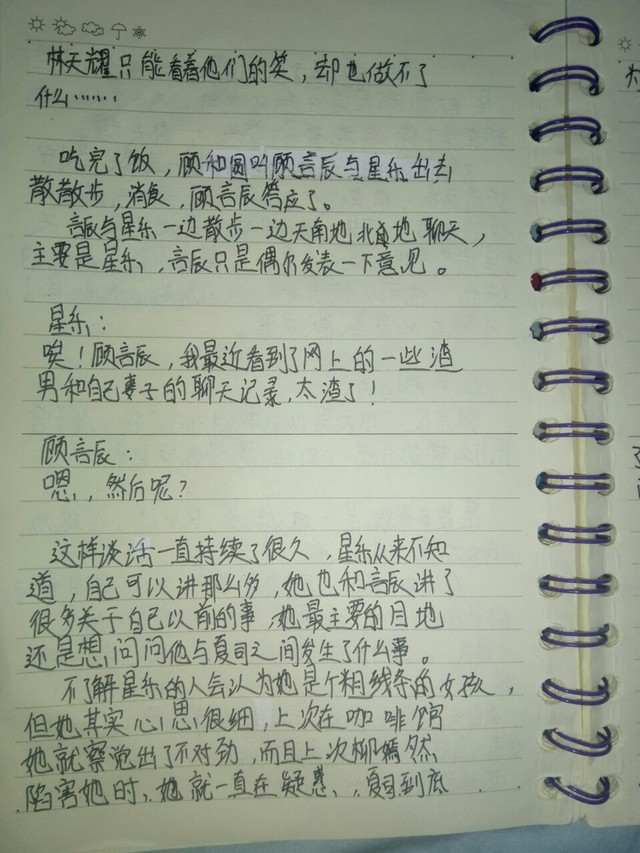 林天耀只能看着他们的笑，却也做不了
什么……
吃完了饭，顾和圆叫顾言辰与星乐出去
散散步，消食，顾言辰答应了。
言辰与星乐一边散步一边天南地北地聊天，
主要是星乐，言辰只是偶尔发表一下意见。
星乐：
唉！顾言辰，我最近看到了网上的一些渣
男和自己妻子的聊天记录，太渣了！
顾言辰：
嗯，然后呢？
这样谈话一直持续了很久，星乐从来不知
道，自己可以讲那么多，她也和言辰讲了
很多关于自己以前的事，她最主要的目地
还是想问问他与夏司之间发生了什么事。
不了解星乐的人会认为她是个粗线条的女孩，
但她其实心思很细，上次在咖啡馆
她就察觉出了不对劲，而且上次柳嫣然
陷害她时，她就一直在疑惑，夏司到底